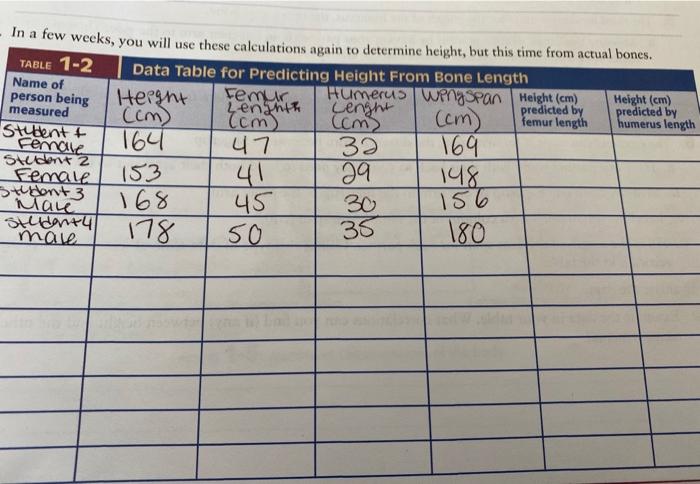 In a few weeks, you will use these calculations again to determine height, but this time from actual bones.
TABLE 1-2 Data Table for Predicting Height From Bone Length
Name of
person being
measured
Height
(cm)
Femur
Lenghth
(cm)
Humerus
Lenght
(cm)
Wingspan
(cm)
Height (cm)
predicted by
femur length
Height (cm)
predicted by
humerus length
Student 1
Female 164 47 32 169
Student 2
Female 153 41 29 148
Student 3
Male 168 45 30 156
Student 4
male 178 50 35 180